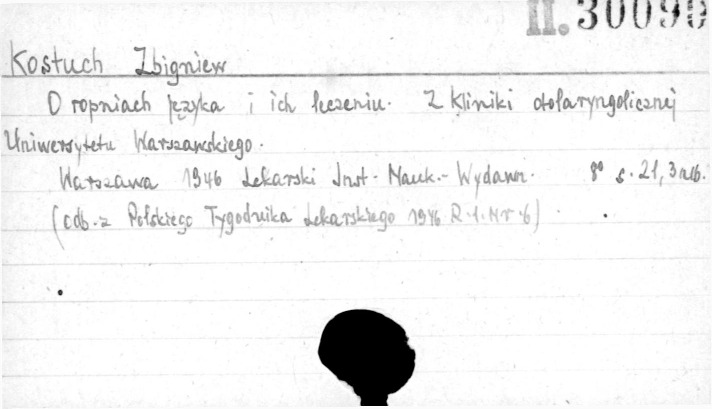 II. 30090
Kostuch Zbigniew
O ropniach języka i ich leczeniu. Z Kliniki otolaryngolicznej
Uniwersytetu Warszawskiego.
Warszawa 1946 Lekarski Inst. Nauk.-Wydawn. 8° s. 21, 3 nlb.
(odb. z Polskiego Tygodnika Lekarskiego 1946 R.1. Nr.6)